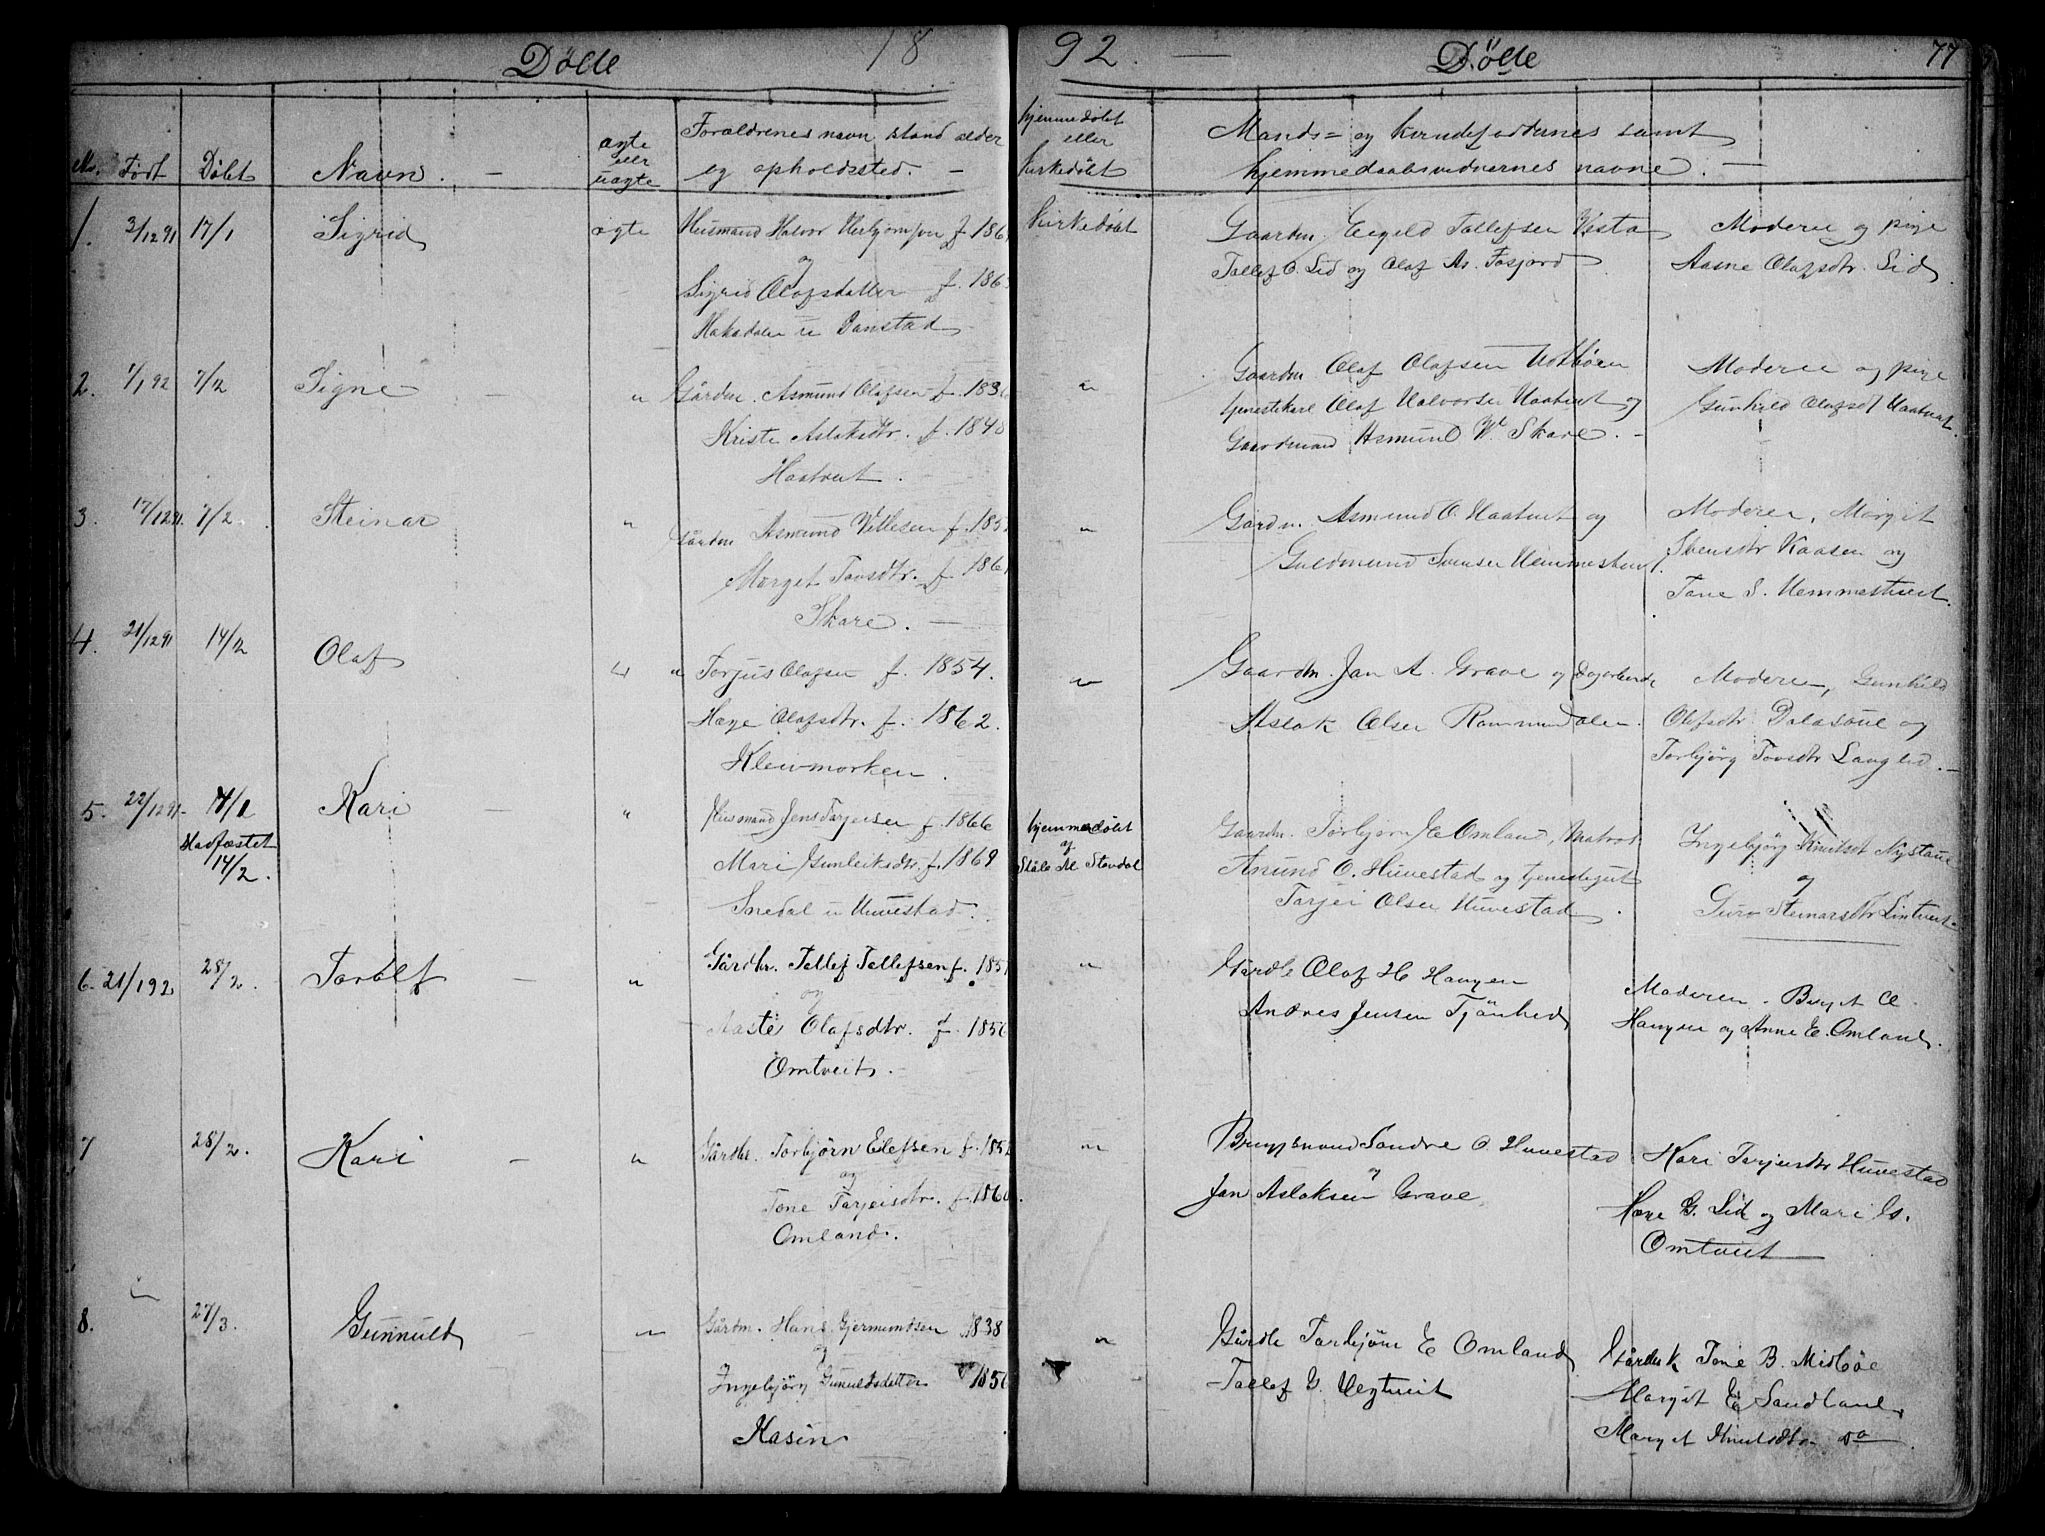 Döbte 18 92. — Döbte 77
No. Födt Döbt Navn. — ægte eller uægte Forældrenes navn stand alder og opholdssted. — hjemmedöbt eller kirkedöbt Mands= og kvindefaddernes samt hjemmedaabsvidnernes navne. —
1. 3/12 91 17/1 Sigrid ægte Husmand Halvor
og
Sigrid Olafsdatter f. 186
u Danstad
kirkedöbt
Gaardm. Eegeld Tallefsen Vesta
Tallef O. Lid og Olaf As. Fosjord
Moderen og pige
Aasne Olafsdtr. Lid
2. 1/1 92 7/2 Signe — " Gårdm. Asmund Olafsen f. 1836
Kriste Aslaksdtr. f. 1840
Haatveit.
"
Gaardm Olaf Olafsen Utböen
tjenestekarl Olaf Halvorsen Haatveit og
Gaardmand Asmund V. Skare. —
Moderen og pige
Gunhild Olafsdt Haatveit.
3. 17/12 91. 7/2. Steinar " Gårdm Asmund Vetlesen f. 185
Marget Tovsdtr. f. 186
Skare. —
"
Gårdm. Asmund O. Haatveit og
Guldmund Svensen Hemmestveit.
Moderen, Margit
Svensdtr Kaasen og
Tone S. Hemmestveit.
4. 21/12 91 14/2 Olaf " " Torjus Olafsen f. 1854.
Hæge Olafsdtr. f. 1862.
Kleivmorken.
"
Gaardm. Jan A. Grave og
Aslak Olsen
Moderen, Gunhild
Olafsdtr. Dalastue og
Torbjörg Tovsdtr Langlid. —
5. 22/12 91. Kari — " Husmand Jens Tarjeisen f. 1866
Stadfæstet
14/2.
Mari Gunleiksdtr. f. 1869
Snedal u Huvestad.
hjemmedöbt
af
Ståle M Stavdal
Gaardm. Torbjörn E Omland,
Anund O. Huvestad og tjenestegut
Tarjei Olsen Huvestad.
Ingebjörg Knutsdt Nystaue
og
Guro Steinarsdtr Lintveit.
6. 21/1 92 28/2. Taralf — " Gårdbr. Tallef Tallefsen f. 185
og
Aaste Olafsdtr. f. 1856
Omtveit. —
"
Gårdb Olaf H Haugen
Andres Jensen Tjönhed
Moderen. Birgit O
Haugen og Anne E. Omland.
7 28/2. Kari — " Gårdbr. Torbjörn Eilefsen f. 185
og
Tone Tarjeisdtr. f. 1860.
Omland.
"
Brugsmand Sondre O. Huvestad
og
Jan Aslaksen Grave
Kari Tarjeisdtr Huvestad
Hæge G. Lid og Mari G.
Omtveit
8. 27/3. Gunnuld — " Gårdm. Hans Gjermundsen 1838
og
Ingebjörg Gunuldsdatter 1850
Kasin
"
Gårdb Torbjörn E Omland
Tallef G.
Gårdbk Tone B. Midböe
Margit E Sandland
Margit Knutsdtr do